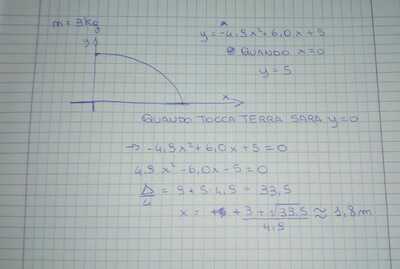 m = 3Kg
y = -4,9x²+6,0x+5
y
QUANDO x=0
y = 5
x
QUANDO TOCCA TERRA SARA y=0
→ -4,9x²+6,0x+5=0
4,9x²-6,0x-5=0
Δ/4 = 9+5·4,9 = 33,5
x = +3+√33,5 / 4,9 ≈ 1,8m